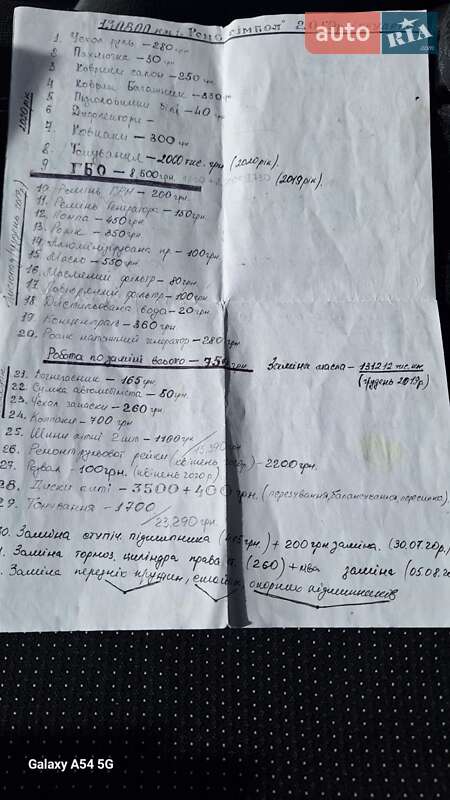 "Рено Сімбол"
auto RIA .com
1. Чехол руль – 280 грн
2. Пахлючка – 50 грн
3. Коврики салон – 250 грн
4. Коврик Багажник – 330 грн
5. Підголовники – 40 грн
6.
7. Ковпаки – 300 грн
8. Тонування – 2000 тис. грн (2020 рік)
9. ГБО – 8,500 грн. (2019 рік).
2020 рік
10. Ремінь ГРМ – 200 грн
11. Ремень Генератора – 150 грн
12. Помпа – 450 грн
13. Ролік – 350 грн
14. пр – 100 грн.
15. Масло – 550 грн
16. Масляний фільтр – 80 грн
17. Повітряний фільтр – 100 грн
18. Дистильована вода – 20 грн
19. Концентрат – 360 грн
20. Ролик натяжний генератор – 280 грн
Робота по заміні всього – 750 грн
Заміна масла – 131212 тис. км
(грудень 2019 р)
21. Вогнегасник – 165 грн
22. Сумка автомобіліста – 50 грн.
23. Чехол запаски – 260 грн
24. Колпаки – 700 грн
25. Шини літні 2 шт – 1100 грн
/15,390 грн
26. Ремонт рульової рейки (квітень 2020 р.) – 2200 грн.
27. Розвал – 100 грн. (квітень 2020 р.)
28. Диски литі – 3500 + 400 грн. (перезування, балансування, перекидка)
29. Тонування – 1700
/23,290 грн.
30. Заміна ступіч. підшипника + 200 грн заміна. (30.07.20р.,
Заміна тормоз. циліндра права (260) + ліва заміна (05.08.20
Заміна передніх пружин, опорних підшипників
Galaxy A54 5G